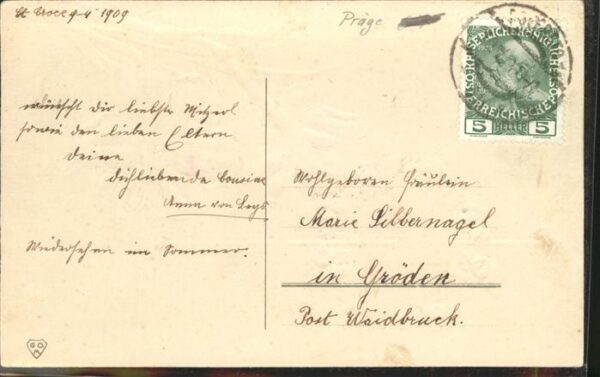 St Croce 9 4 1909
Präge
wünscht dir liebste Mitzerl
sowie den lieben Eltern
deine
dichliebende Cousine
Anna von Legs
Wiedersehen im Sommer.
KAISERLICHE KÖNIGLICHE
ÖSTERREICHISCHE POST
5 HELLER 5
Wohlgeboren Fräulein
Marie Silbernagel
in Gröden
Post Waidbruck.